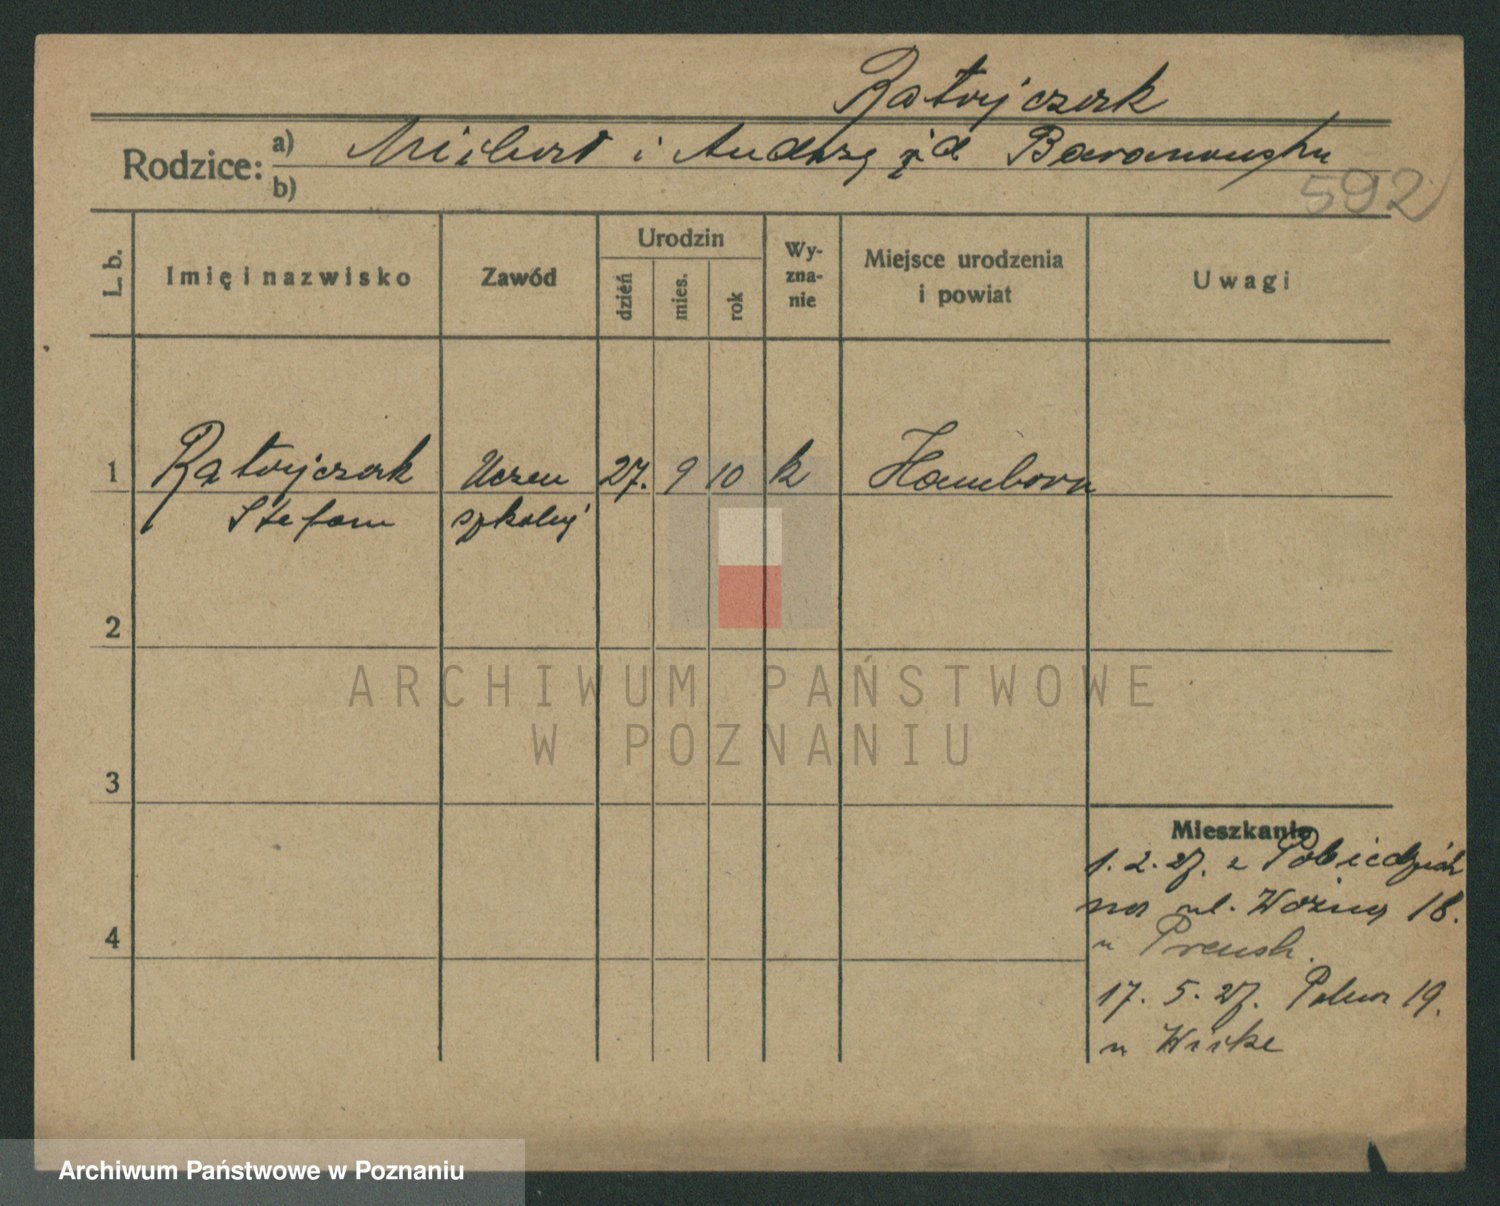 Ratajczak
Rodzice: a) Michał i
b)
592
L. b. Imię i nazwisko Zawód Urodzin dzień mies. rok Wyznanie Miejsce urodzenia i powiat Uwagi
1 Ratajczak Uczeń 27. 9 10 k Hamborn
Stefan szkolny
2
ARCHIWUM PAŃSTWOWE
W POZNANIU
3
Mieszkanie
1. 2. 27. z Pobiedzisk
na ul. Woźną 18.
4
u
17. 5. 27. Polna 19.
u
Archiwum Państwowe w Poznaniu